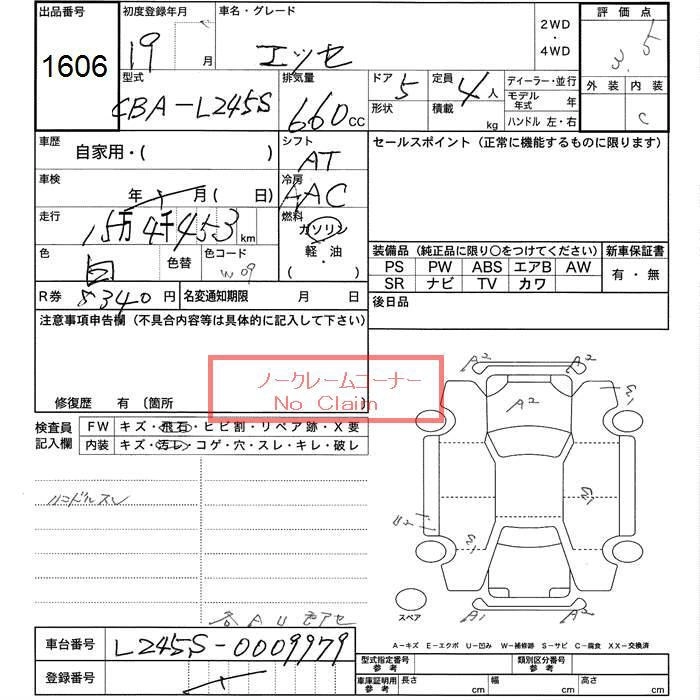 出品番号 初度登録年月 車名・グレード 2WD ・ 4WD 評価点
1606 19 月 エッセ 3.5
外装 内装
C
型式 排気量 ドア 5 定員 4人 ディーラー・並行
CBA-L245S 660cc 形状 積載 kg モデル年式 年
ハンドル 左・右
車歴 自家用・( ) シフト AT セールスポイント(正常に機能するものに限ります)
車検 年 月( 日) 冷房 AAC
走行 15万4千453km 燃料 ガソリン
軽・油
・( )
色 白 色替 色コード W09
装備品(純正品に限り○をつけてください) 新車保証書
PS PW ABS エアB AW 有・無
SR ナビ TV カワ
R券 8340円 名変通知期限 月 日 後日品
注意事項申告欄(不具合内容等は具体的に記入して下さい)
ノークレームコーナー
No Claim
修復歴 有 〔箇所 〕
検査員記入欄 FW キズ・飛石・ヒビ割・リペア跡・X要
内装 キズ・汚レ・コゲ・穴・スレ・キレ・破レ
ハンドルスレ
A2 A2
A2
スペア
A1 A2
A-キズ E-エクボ U-凹み W-補修跡 S-サビ C-腐食 XX-交換済
車台番号 L245S-0009979
登録番号
型式指定番号 参考 類別区分番号 参考
車庫証明用 参考 長さ cm 幅 cm 高さ cm